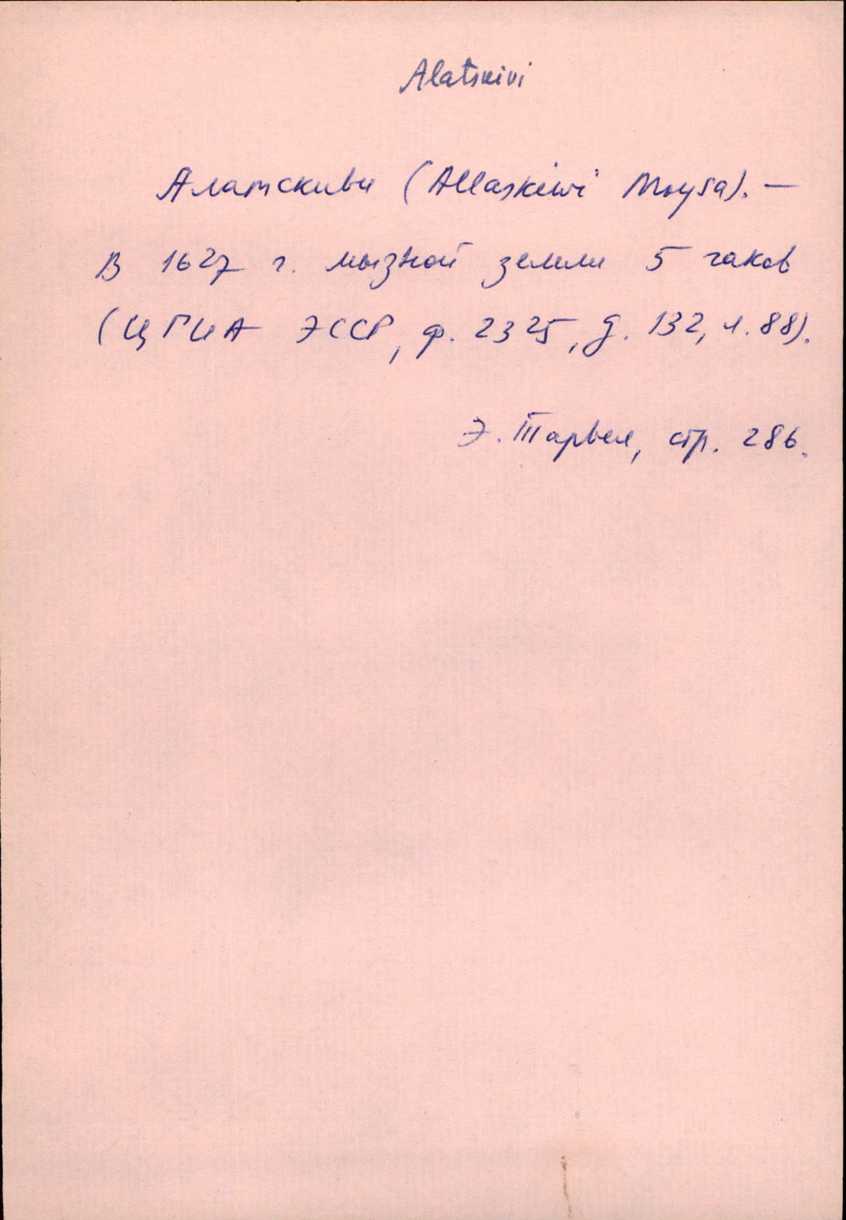 Alatskivi
Алатскиви (Allaskiwi Moysa). —
В 1627 г. мызной земли 5 гаков
(ЦГИА ЭССР, ф. 2325, д. 132, л. 88).
Э. Тарвел, стр. 286.